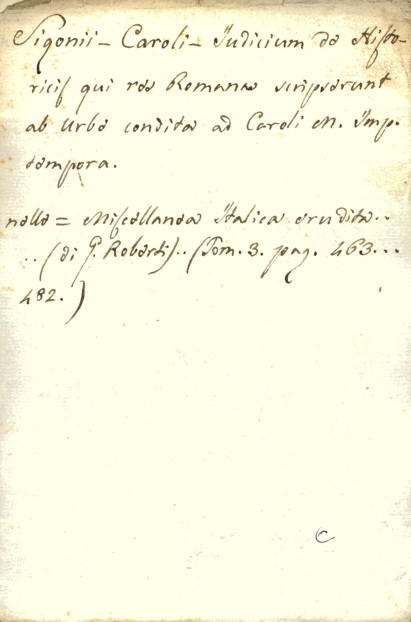 Sigonii - Caroli - Judicium de Histo-
ricis qui res Romanas scripserunt
ab Urbe condita ad Caroli M. Imp.
tempora.
nelle = Miscellanea Italica erudita..
..(di G. Roberti)..(Tom. 3. pag. 463...
482.)
C